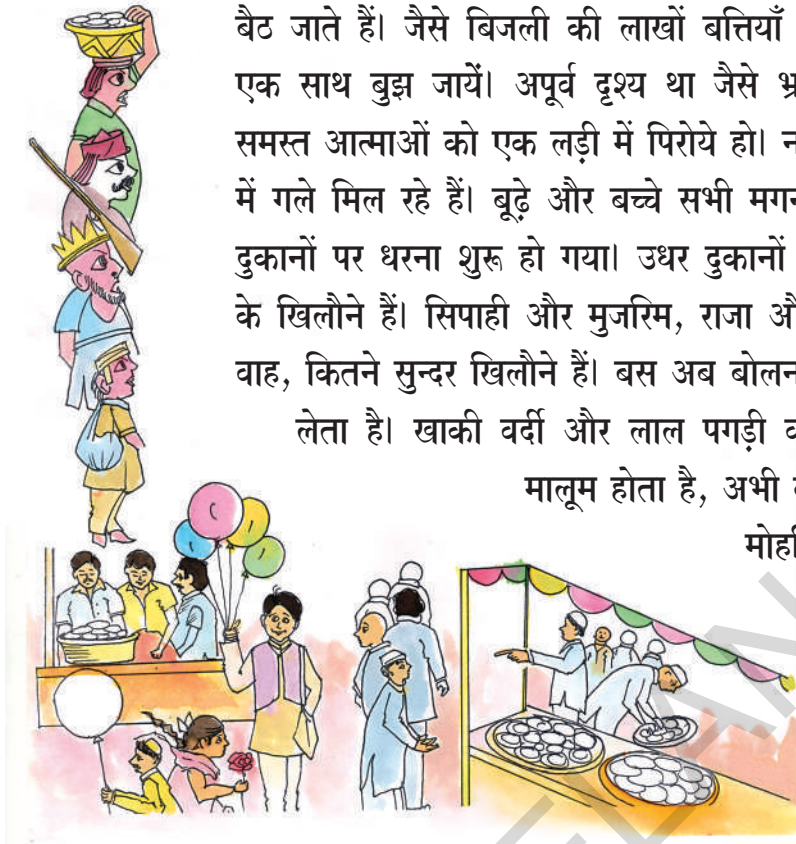 बैठ जाते हैं। जैसे बिजली की लाखों बत्तियाँ
एक साथ बुझ जायें। अपूर्व दृश्य था जैसे भ्र
समस्त आत्माओं को एक लड़ी में पिरोये हो। न
में गले मिल रहे हैं। बूढ़े और बच्चे सभी मगन
दुकानों पर धरना शुरू हो गया। उधर दुकानों
के खिलौने हैं। सिपाही और मुजरिम, राजा औ
वाह, कितने सुन्दर खिलौने हैं। बस अब बोलन
लेता है। खाकी वर्दी और लाल पगड़ी व
मालूम होता है, अभी व
मोहि